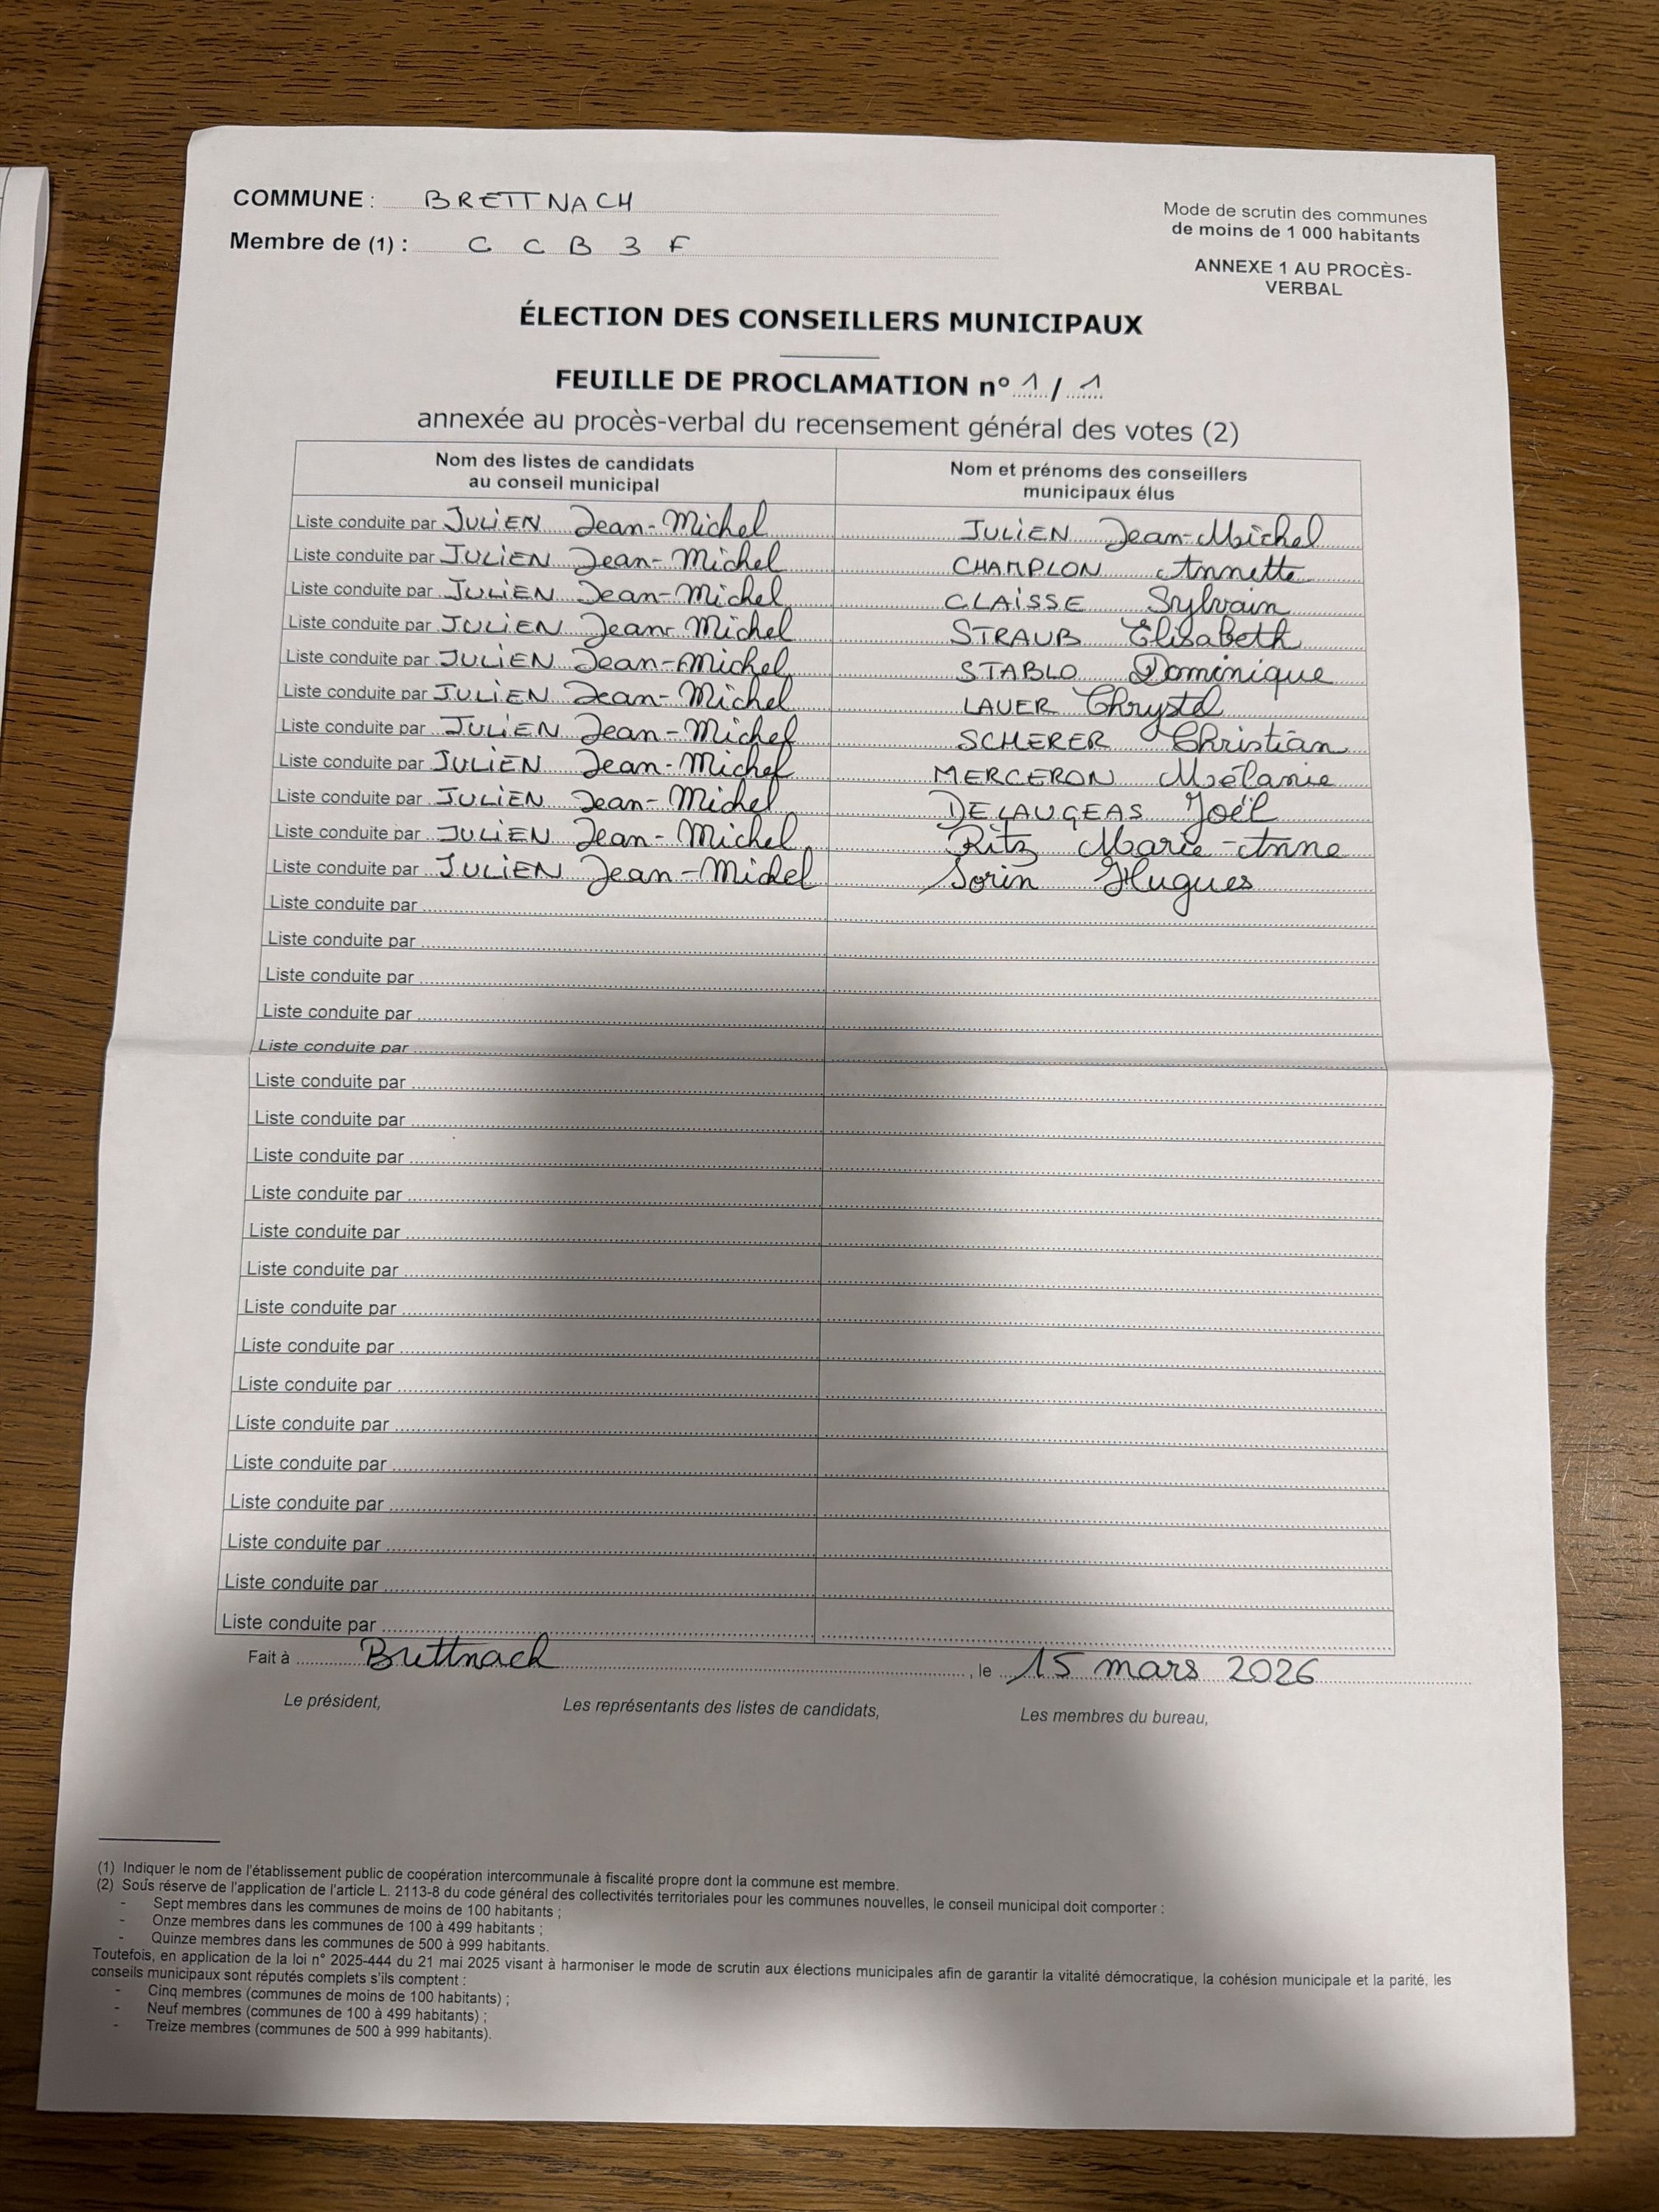 COMMUNE : BRETTNACH
Membre de (1) : C C B 3 F
Mode de scrutin des communes
de moins de 1 000 habitants
ANNEXE 1 AU PROCÈS-
VERBAL
ÉLECTION DES CONSEILLERS MUNICIPAUX
FEUILLE DE PROCLAMATION n° 1 / 1
annexée au procès-verbal du recensement général des votes (2)
Nom des listes de candidats
au conseil municipal
Nom et prénoms des conseillers
municipaux élus
Liste conduite par JULIEN Jean-Michel JULIEN Jean-Michel
Liste conduite par JULIEN Jean-Michel CHAMPLON Annette
Liste conduite par JULIEN Jean-Michel CLAISSE Sylvain
Liste conduite par JULIEN Jean-Michel STRAUB Elisabeth
Liste conduite par JULIEN Jean-Michel STABLO Dominique
Liste conduite par JULIEN Jean-Michel LAUER Chrystel
Liste conduite par JULIEN Jean-Michel SCHERER Christian
Liste conduite par JULIEN Jean-Michel MERCERON Mélanie
Liste conduite par JULIEN Jean-Michel DELAUGEAS Joël
Liste conduite par JULIEN Jean-Michel Ritz Marie-Anne
Liste conduite par JULIEN Jean-Michel Sorin Hugues
Liste conduite par
Liste conduite par
Liste conduite par
Liste conduite par
Liste conduite par
Liste conduite par
Liste conduite par
Liste conduite par
Liste conduite par
Liste conduite par
Liste conduite par
Liste conduite par
Liste conduite par
Liste conduite par
Liste conduite par
Liste conduite par
Liste conduite par
Liste conduite par
Liste conduite par
Liste conduite par
Fait à Brettnach , le 15 mars 2026
Le président, Les représentants des listes de candidats, Les membres du bureau,
(1) Indiquer le nom de l'établissement public de coopération intercommunale à fiscalité propre dont la commune est membre.
(2) Sous réserve de l'application de l'article L. 2113-8 du code général des collectivités territoriales pour les communes nouvelles, le conseil municipal doit comporter :
- Sept membres dans les communes de moins de 100 habitants ;
- Onze membres dans les communes de 100 à 499 habitants ;
- Quinze membres dans les communes de 500 à 999 habitants.
Toutefois, en application de la loi n° 2025-444 du 21 mai 2025 visant à harmoniser le mode de scrutin aux élections municipales afin de garantir la vitalité démocratique, la cohésion municipale et la parité, les
conseils municipaux sont réputés complets s'ils comptent :
- Cinq membres (communes de moins de 100 habitants) ;
- Neuf membres (communes de 100 à 499 habitants) ;
- Treize membres (communes de 500 à 999 habitants).